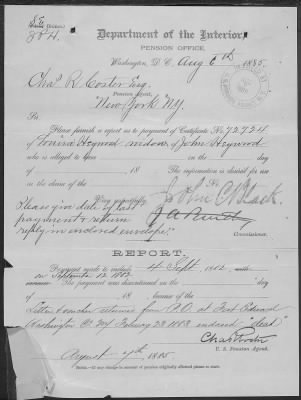 Department of the Interior,
PENSION OFFICE,
Washington, D. C. Aug 6th 1885
Chas. R. Coster Esq.
Pension Agent,
New York N.Y.
Sir:
Please furnish a report as to payment of Certificate No. 72724
of Louisa Heywood widow of John Heywood
who is alleged to have on the day
of 18 . The information is desired for use
in the claim of the No.
Very respectfully,
John C Black
Please give date of last
payment & return
reply in enclosed envelope.
Commissioner.
REPORT.
Payment made to include 4 Sept. 1882, with
on September 12 1882
The payment was discontinued on the day
of 18 , because of the
Letter & voucher returned from P.O. at Fort Edward
Washington Co. NY February 23 1883 endorsed "dead"
Chas R Coster
U. S. Pension Agent.
August 7th 1885
NOTE.—If any change in amount of pension originally allowed please to state.